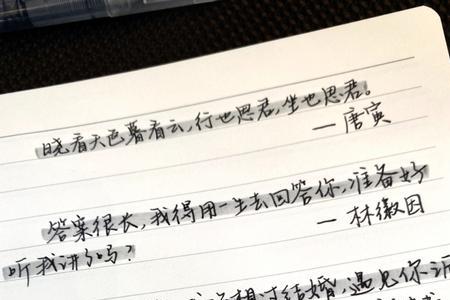 晓看天色暮看云,行也思君,坐也思君。
—唐寅
答案很长,我得用一生去回答你,准备好
听我讲了吗?
—林徽因
想过结婚,遇见你